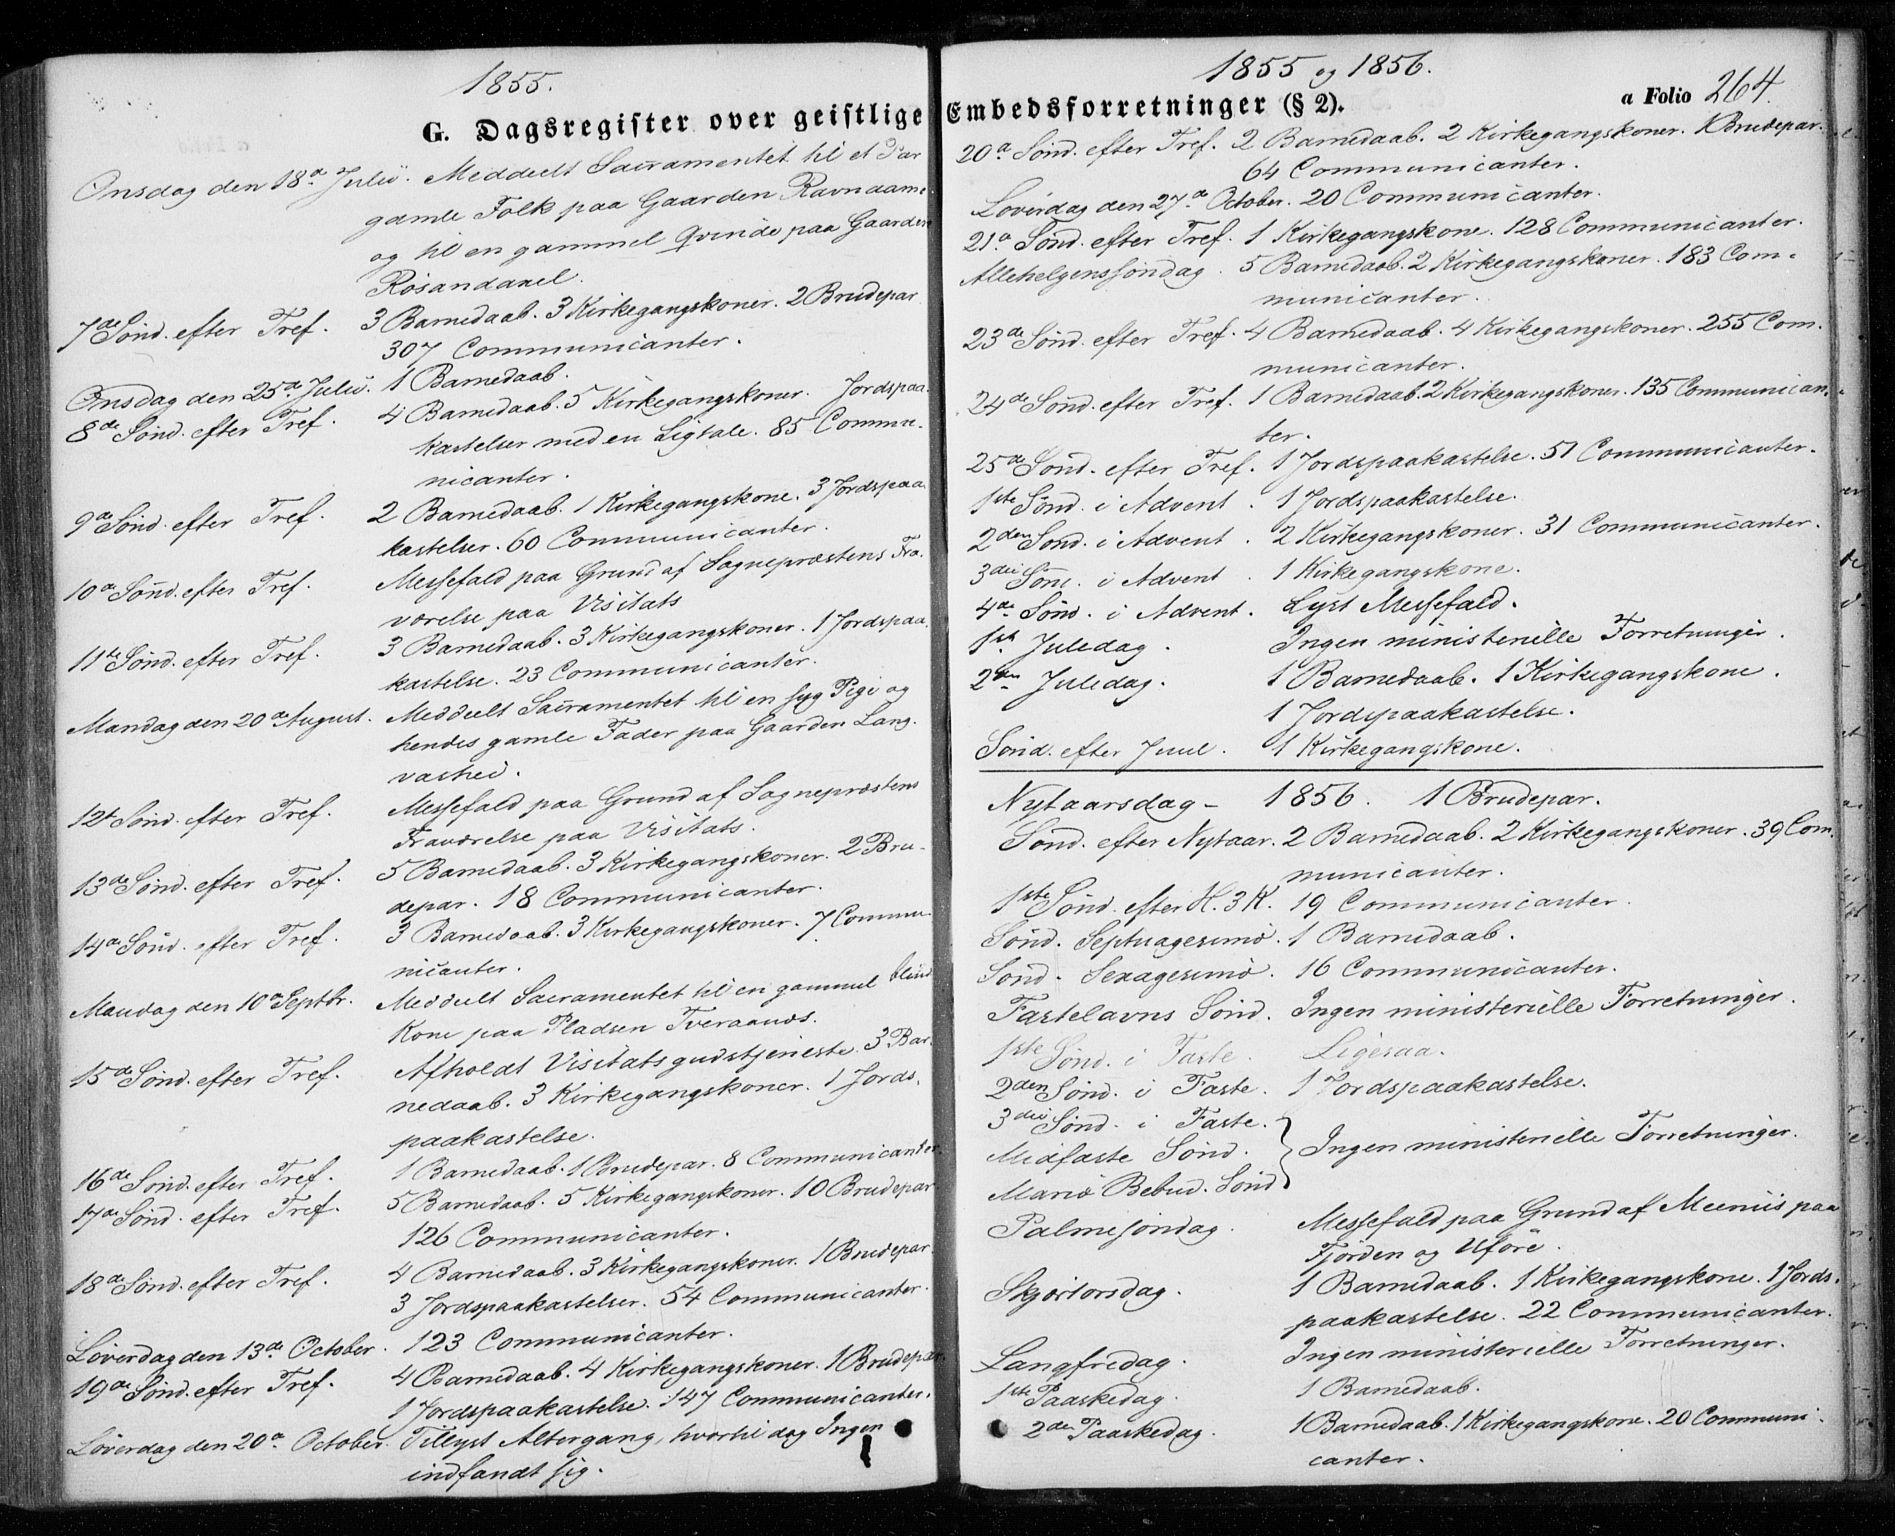 1855.
G. Dagsregister over geistlige
Onsdag den 18de Julii. Meddeelt Sacramentet til et Par
gamle Folk paa Gaarden
og til en gammel Qvinde paa Gaarden
7de Sönd. efter Tref. 3 Barnedaab. 3 Kirkegangskoner. 2 Brudepar
307 Communicanter.
Onsdag den 25de Julii. 1 Barnedaab.
8de Sönd. efter Tref. 4 Barnedaab. 5 Kirkegangskoner. Jordspaa-
kastelser med en Ligtale. 85 Commu-
nicanter.
9de Sönd. efter Tref. 2 Barnedaab. 1 Kirkegangskone. 3 Jordspaa-
kastelser. 60 Communicanter.
10de Sönd. efter Tref. Messefald paa Grund af Sognepræstens Fra-
værelse paa Visitats
11te Sönd. efter Tref. 3 Barnedaab. 3 Kirkegangskoner. 1 Jordspaa-
kastelse. 23 Communicanter.
Mandag den 20de August. Meddeelt Sacramentet til en syg Pige og
hendes gamle Fader paa Gaarden Lang-
12te Sönd. efter Tref. Messefald paa Grund af Sognepræstens
Fraværelse paa Visitats.
13de Sönd. efter Tref. 5 Barnedaab. 3 Kirkegangskoner. 2 Bru-
depar. 18 Communicanter.
14de Sönd. efter Tref. 3 Barnedaab. 3 Kirkegangskoner. 7 Commu-
nicanter.
Mandag den 10de Septbr. Meddeelt Sacramentet til en gammel blind
Kone paa Pladsen Tveraands.
15de Sönd. efter Tref. Afholdt Visitatsgudstjeneste. 3 Bar-
nedaab. 3 Kirkegangskoner. 1 Jords-
paakastelse.
16de Sönd. efter Tref. 1 Barnedaab. 1 Brudepar. 8 Communicanter
17de Sönd. efter Tref. 5 Barnedaab. 5 Kirkegangskoner. 10 Brudepar
126 Communicanter.
18de Sönd. efter Tref. 4 Barnedaab. 3 Kirkegangskoner. 1 Brudepar
3 Jordspaakastelser. 54 Communicanter.
Löverdag den 13de October. 123 Communicanter.
19de Sönd. efter Tref. 4 Barnedaab. 4 Kirkegangskoner. 1 Brudepar.
1 Jordspaakastelse. 147 Communicanter.
Löverdag den 20de October. Tillyst Altergang, hvortil dog Ingen
indfandt sig.
1855 og 1856.
Embedsforretninger (§ 2).
a Folio 264.
20de Sönd. efter Tref. 2 Barnedaab. 2 Kirkegangskoner. 1 Brudepar.
64 Communicanter.
Löverdag den 27de October. 20 Communicanter.
21de Sönd. efter Tref. 1 Kirkegangskone. 128 Communicanter.
Allehelgenssöndag. 5 Barnedaab. 2 Kirkegangskoner. 183 Com-
municanter.
23de Sönd. efter Tref. 4 Barnedaab. 4 Kirkegangskoner. 255 Com-
municanter.
24de Sönd. efter Tref. 1 Barnedaab. 2 Kirkegangskoner. 135 Communican-
ter.
25de Sönd. efter Tref. 1 Jordspaakastelse. 51 Communicanter.
1ste Sönd. i Advent. 1 Jordspaakastelse.
2den Sönd. i Advent. 2 Kirkegangskoner. 31 Communicanter.
3die Sönd. i Advent. 1 Kirkegangskone.
4de Sönd. i Advent. Lyst Messefald.
1ste Juledag. Ingen ministerielle Forretninger.
2den Juledag. 1 Barnedaab. 1 Kirkegangskone.
1 Jordspaakastelse.
Sönd. efter Juul. 1 Kirkegangskone.
Nytaarsdag - 1856. 1 Brudepar.
Sönd. efter Nytaar. 2 Barnedaab. 2 Kirkegangskoner. 39 Com-
municanter.
1ste Sönd. efter H. 3 K. 19 Communicanter.
Sönd. Septuagesimæ. 1 Barnedaab.
Sönd. Sexagesimæ. 16 Communicanter.
Fastelavns Sönd. Ingen ministerielle Forretninger.
1ste Sönd. i Faste. Ligesaa.
2den Sönd. i Faste. 1 Jordspaakastelse.
3die Sönd. i Faste.
Midfaste Sönd. Ingen ministerielle Forretninger.
Mariæ Bebud. Sönd
Palmesöndag. Messefald paa Grund af Meeniis paa
Fjorden og Uföre.
Skjærtorsdag. 1 Barnedaab. 1 Kirkegangskone. 1 Jords-
paakastelse. 22 Communicanter.
Langfredag. Ingen ministerielle Forretninger.
1ste Paaskedag. 1 Barnedaab.
2den Paaskedag. 1 Barnedaab. 1 Kirkegangskone. 20 Communi-
canter.